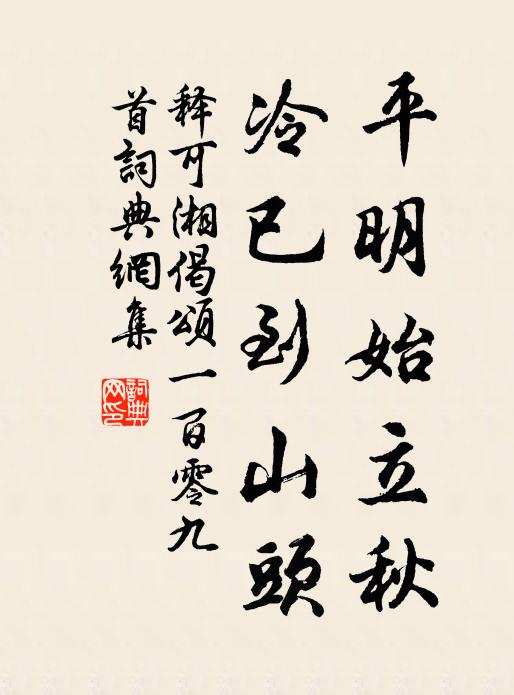 平明始立秋
冷已到山頭
释可湘偈頌一百零九
首詞典網集
詞典网印